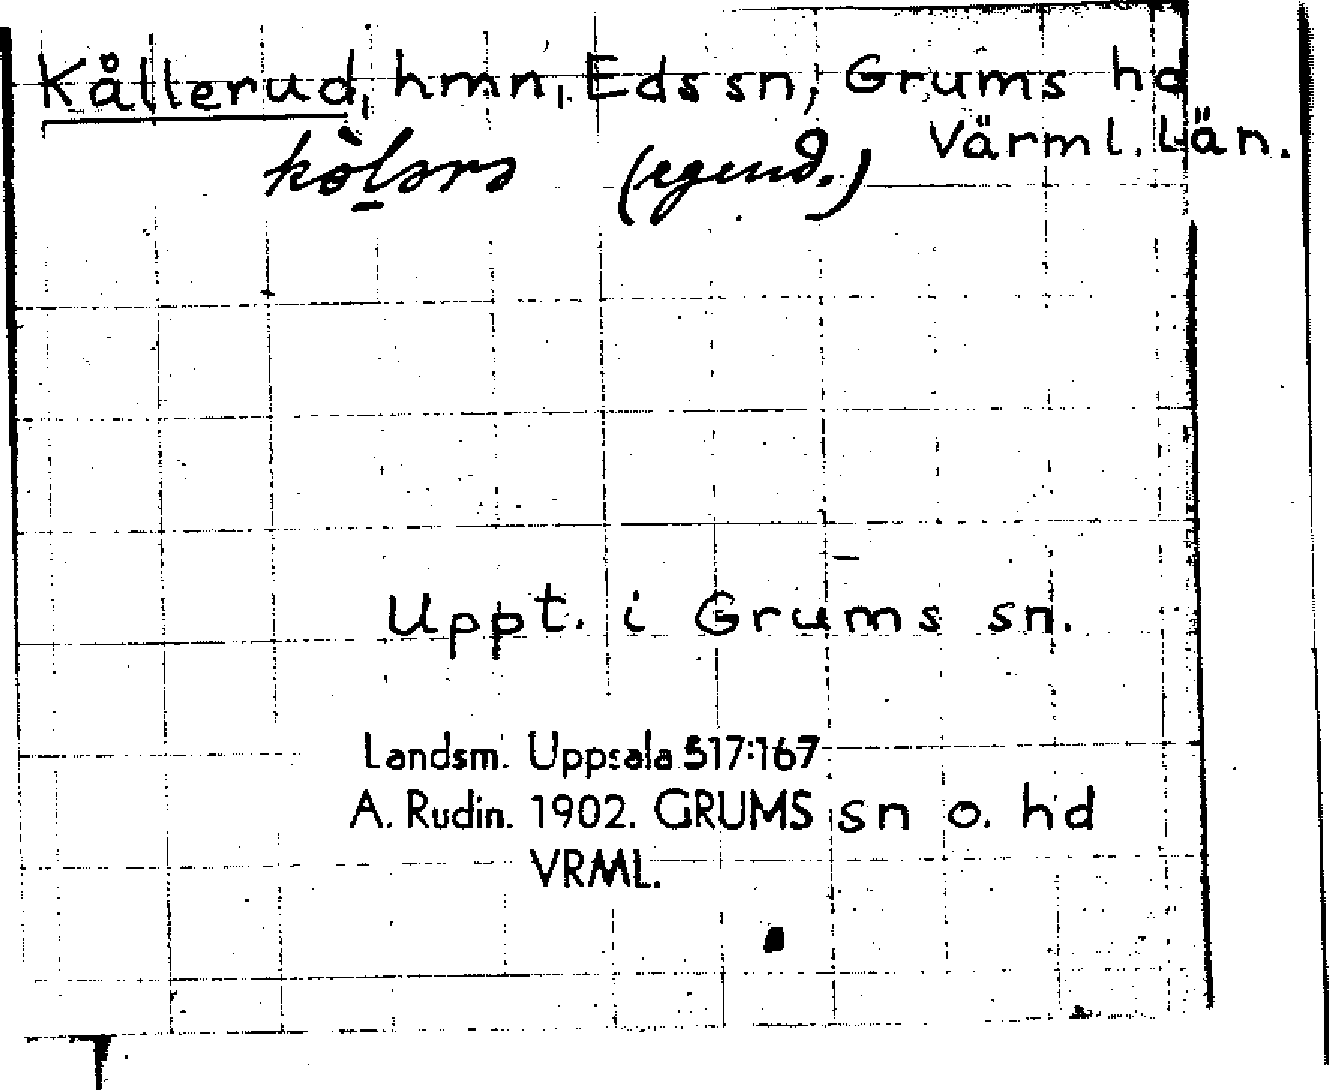 Kållerud, hmn, Eds sn, Grums hd
Värml. Län.
kòlərə (egend.)
Uppt. i Grums sn.
Landsm. Uppsala 517:167
A. Rudin. 1902. GRUMS sn o. hd
VRML.